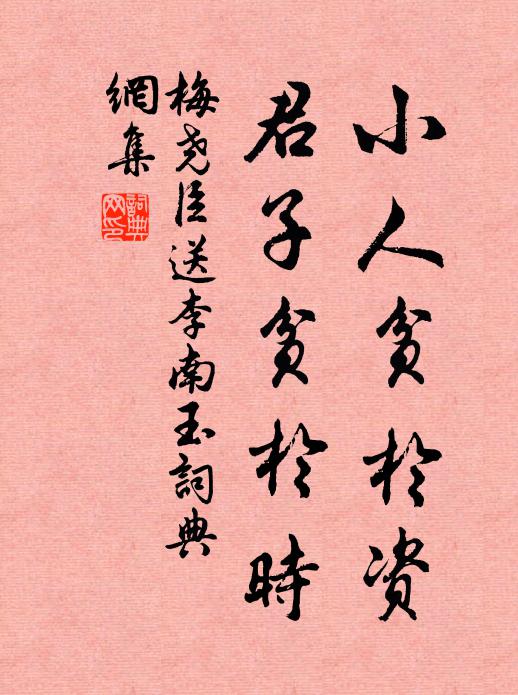 小人贫於资
君子贫於時
梅尧臣送李南玉詞典
網集
詞典
网印